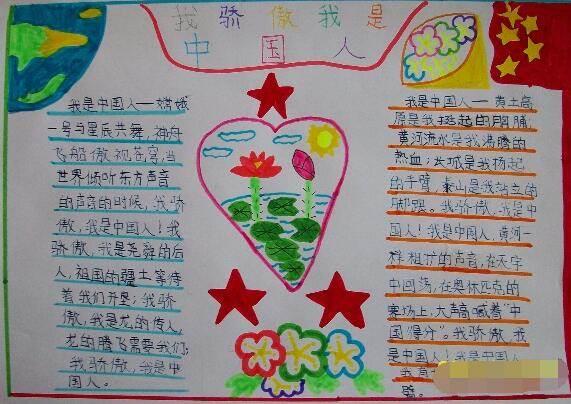 我骄傲我是
中国人
我是中国人——嫦娥
一号与星辰共舞,神舟
飞船傲视苍穹,当
世界倾听东方声音
的声音的时候,我骄
傲,我是中国人!我
骄傲,我是尧舜的后
人,祖国的疆土等待
着我们开垦;我骄
傲,我是龙的传人,
龙的腾飞需要我们;
我骄傲,我是中
国人。
我是中国人——黄土高
原是我挺起的胸脯,
黄河流水是我沸腾的
热血;长城是我扬起
的手臂,泰山是我站立的
脚跟。我骄傲,我是中
国人!我是中国人,黄河一
样粗犷的声音,在天宇
中回荡,在奥林匹克的
赛场上,大声高喊着"中
国得分"。我骄傲,我
是中国人!我是中国人,
我